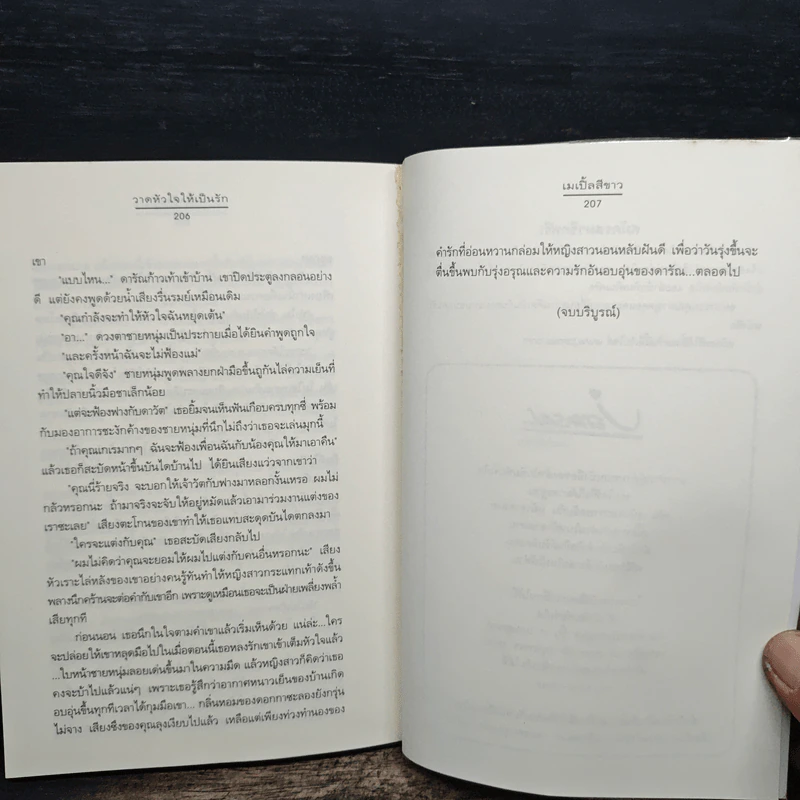 วาดหัวใจให้เป็นรัก
206
เขา
"แบบไหน..." ดารัณก้าวเท้าเข้าบ้าน เขาปิดประตูลงกลอนอย่าง
ดี แต่ยังคงพูดด้วยน้ำเสียงรื่นรมย์เหมือนเดิม
"คุณกำลังจะทำให้หัวใจฉันหยุดเต้น"
"อา..." ดวงตาชายหนุ่มเป็นประกายเมื่อได้ยินคำพูดถูกใจ
"และครั้งหน้าฉันจะไม่ฟ้องแม่"
"คุณใจดีจัง" ชายหนุ่มพูดพลางยกฝ่ามือขึ้นถูกันไล่ความเย็นที่
ทำให้ปลายนิ้วมือชาเล็กน้อย
"แต่จะฟ้องฟางกับดาวัต" เธอยิ้มจนเห็นฟันเกือบครบทุกซี่ พร้อม
กับมองอาการชะงักค้างของชายหนุ่มที่นึกไม่ถึงว่าเธอจะเล่นมุกนี้
"ถ้าคุณเกเรมากๆ ฉันจะฟ้องเพื่อนฉันกับน้องคุณให้มาเอาคืน"
แล้วเธอก็สะบัดหน้าขึ้นบันไดบ้านไป ได้ยินเสียงแว่วจากเขาว่า
"คุณนี่ร้ายจริง จะบอกให้เจ้าวัตกับฟางมาหลอกงั้นเหรอ ผมไม่
กลัวหรอกนะ ถ้ามาจริงจะจับให้อยู่หมัดแล้วเอามาร่วมงานแต่งของ
เราซะเลย" เสียงตะโกนของเขาทำให้เธอแทบสะดุดบันไดตกลงมา
"ใครจะแต่งกับคุณ" เธอสะบัดเสียงกลับไป
"ผมไม่คิดว่าคุณจะยอมให้ผมไปแต่งกับคนอื่นหรอกนะ" เสียง
หัวเราะไล่หลังของเขาอย่างคนรู้ทันทำให้หญิงสาวกระแทกเท้าดังขึ้น
พลางนึกคร้านจะต่อคำกับเขาอีก เพราะดูเหมือนเธอจะเป็นฝ่ายเพลี่ยงพล้ำ
เสียทุกที
ก่อนนอน เธอนึกในใจตามคำเขาแล้วเริ่มเห็นด้วย แน่ล่ะ...ใคร
จะปล่อยให้เขาหลุดมือไปในเมื่อตอนนี้เธอหลงรักเขาเข้าเต็มหัวใจแล้ว
...ใบหน้าชายหนุ่มลอยเด่นขึ้นมาในความมืด แล้วหญิงสาวก็คิดว่าเธอ
คงจะบ้าไปแล้วแน่ๆ เพราะเธอรู้สึกว่าอากาศหนาวเย็นของบ้านเกิด
อบอุ่นขึ้นทุกทีเวลาได้กุมมือเขา... กลิ่นหอมของดอกกาซะลองยังกรุ่น
ไม่จาง เสียงซึงของคุณลุงเงียบไปแล้ว เหลือแต่เพียงท่วงทำนองของ
เมเปิ้ลสีขาว
207
คำรักที่อ่อนหวานกล่อมให้หญิงสาวนอนหลับฝันดี เพื่อว่าวันรุ่งขึ้นจะ
ตื่นขึ้นพบกับรุ่งอรุณและความรักอันอบอุ่นของดารัณ...ตลอดไป
(จบบริบูรณ์)